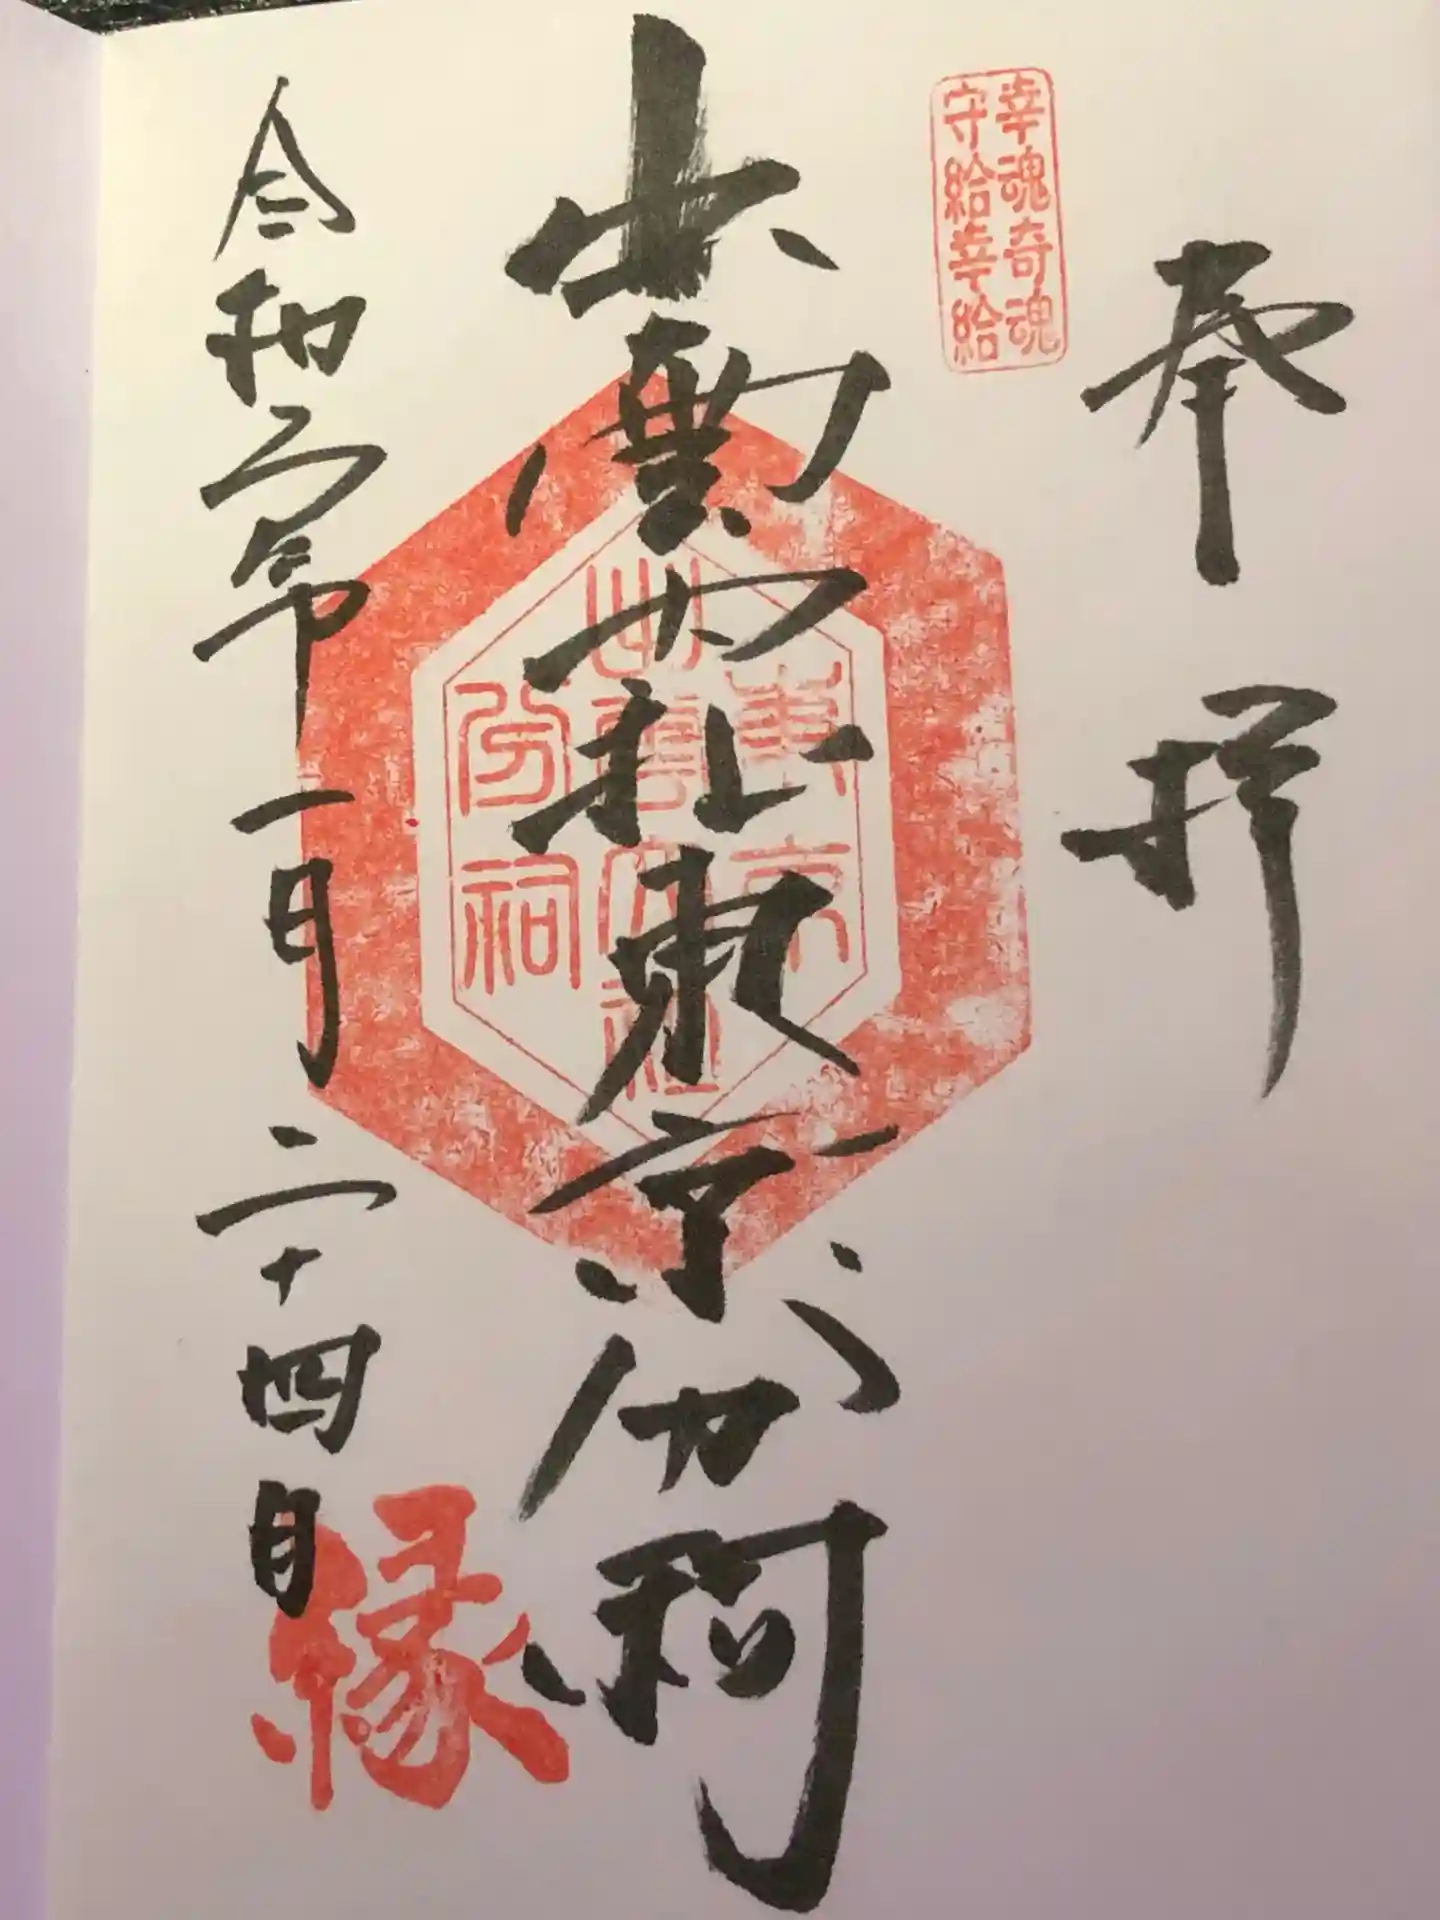 奉拝
幸魂奇魂
守給幸給
出雲大社東京分祠
東京
出雲大社
分祠
令和二年一月二十四日
縁